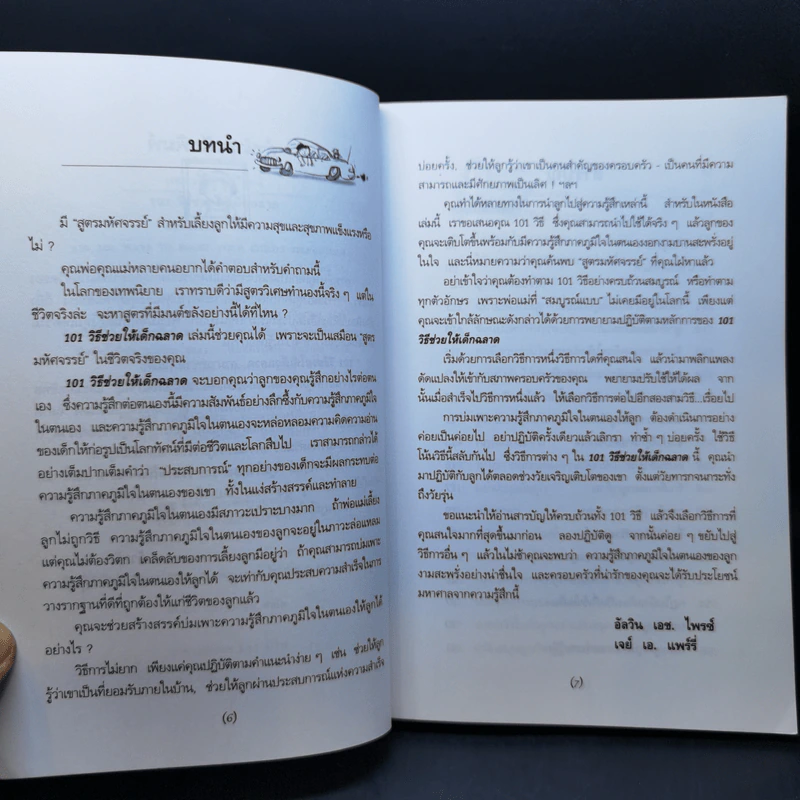 บทนำ
มี "สูตรมหัศจรรย์" สำหรับเลี้ยงลูกให้มีความสุขและสุขภาพแข็งแรงหรือ
ไม่ ?
คุณพ่อคุณแม่หลายคนอยากได้คำตอบสำหรับคำถามนี้
ในโลกของเทพนิยาย เราทราบดีว่ามีสูตรวิเศษทำนองนี้จริง ๆ แต่ใน
ชีวิตจริงล่ะ จะหาสูตรที่มีมนต์ขลังอย่างนี้ได้ที่ไหน ?
101 วิธีช่วยให้เด็กฉลาด เล่มนี้ช่วยคุณได้ เพราะจะเป็นเสมือน "สูตร
มหัศจรรย์" ในชีวิตจริงของคุณ
101 วิธีช่วยให้เด็กฉลาด จะบอกคุณว่าลูกของคุณรู้สึกอย่างไรต่อตน
เอง ซึ่งความรู้สึกต่อตนเองนี้มีความสัมพันธ์อย่างลึกซึ้งกับความรู้สึกภาคภูมิใจ
ในตนเอง และความรู้สึกภาคภูมิใจในตนเองจะหล่อหลอมความคิดความอ่าน
ของเด็กให้ก่อรูปเป็นโลกทัศน์ที่มีต่อชีวิตและโลกสืบไป เราสามารถกล่าวได้
อย่างเต็มปากเต็มคำว่า "ประสบการณ์" ทุกอย่างของเด็กจะมีผลกระทบต่อ
ความรู้สึกภาคภูมิใจในตนเองของเขา ทั้งในแง่สร้างสรรค์และทำลาย
ความรู้สึกภาคภูมิใจในตนเองมีสภาวะเปราะบางมาก ถ้าพ่อแม่เลี้ยง
ลูกไม่ถูกวิธี ความรู้สึกภาคภูมิใจในตนเองของลูกจะอยู่ในภาวะล่อแหลม
แต่คุณไม่ต้องวิตก เคล็ดลับของการเลี้ยงลูกมีอยู่ว่า ถ้าคุณสามารถบ่มเพาะ
ความรู้สึกภาคภูมิใจในตนเองให้ลูกได้ จะเท่ากับคุณประสบความสำเร็จในการ
วางรากฐานที่ดีที่ถูกต้องให้แก่ชีวิตของลูกแล้ว
คุณจะช่วยสร้างสรรค์บ่มเพาะความรู้สึกภาคภูมิใจในตนเองให้ลูกได้
อย่างไร ?
วิธีการไม่ยาก เพียงแค่คุณปฏิบัติตามคำแนะนำง่าย ๆ เช่น ช่วยให้ลูก
รู้ว่าเขาเป็นที่ยอมรับภายในบ้าน, ช่วยให้ลูกผ่านประสบการณ์แห่งความสำเร็จ
(6)
บ่อยครั้ง, ช่วยให้ลูกรู้ว่าเขาเป็นคนสำคัญของครอบครัว - เป็นคนที่มีความ
สามารถและมีศักยภาพเป็นเลิศ ! ฯลฯ
คุณทำได้หลายทางในการนำลูกไปสู่ความรู้สึกเหล่านี้ สำหรับในหนังสือ
เล่มนี้ เราขอเสนอคุณ 101 วิธี ซึ่งคุณสามารถนำไปใช้ได้จริง ๆ แล้วลูกของ
คุณจะเติบโตขึ้นพร้อมกับมีความรู้สึกภาคภูมิใจในตนเองงอกงามบานสะพรั่งอยู่
ในใจ และนี่หมายความว่าคุณค้นพบ "สูตรมหัศจรรย์" ที่คุณใฝ่หาแล้ว
อย่าเข้าใจว่าคุณต้องทำตาม 101 วิธีอย่างครบถ้วนสมบูรณ์ หรือทำตาม
ทุกตัวอักษร เพราะพ่อแม่ที่ "สมบูรณ์แบบ" ไม่เคยมีอยู่ในโลกนี้ เพียงแต่
คุณจะเข้าใกล้ลักษณะดังกล่าวได้ด้วยการพยายามปฏิบัติตามหลักการของ 101
วิธีช่วยให้เด็กฉลาด
เริ่มด้วยการเลือกวิธีการหนึ่งวิธีการใดที่คุณสนใจ แล้วนำมาพลิกแพลง
ดัดแปลงให้เข้ากับสภาพครอบครัวของคุณ พยายามปรับใช้ให้ได้ผล จาก
นั้นเมื่อสำเร็จไปวิธีการหนึ่งแล้ว ให้เลือกวิธีการต่อไปอีกสองสามวิธี...เรื่อยไป
การบ่มเพาะความรู้สึกภาคภูมิใจในตนเองให้ลูก ต้องดำเนินการอย่าง
ค่อยเป็นค่อยไป อย่าปฏิบัติครั้งเดียวแล้วเลิกรา ทำซ้ำ ๆ บ่อยครั้ง ใช้วิธี
โน้นวิธีนี้สลับกันไป ซึ่งวิธีการต่าง ๆ ใน 101 วิธีช่วยให้เด็กฉลาด นี้ คุณนำ
มาปฏิบัติกับลูกได้ตลอดช่วงวัยเจริญเติบโตของเขา ตั้งแต่วัยทารกจนกระทั่ง
ถึงวัยรุ่น
ขอแนะนำให้อ่านสารบัญให้ครบถ้วนทั้ง 101 วิธี แล้วจึงเลือกวิธีการที่
คุณสนใจมากที่สุดขึ้นมาก่อน ลองปฏิบัติดู จากนั้นค่อย ๆ ขยับไปสู่
วิธีการอื่น ๆ แล้วในไม่ช้าคุณจะพบว่า ความรู้สึกภาคภูมิใจในตนเองของลูก
งามสะพรั่งอย่างน่าชื่นใจ และครอบครัวที่น่ารักของคุณจะได้รับประโยชน์
มหาศาลจากความรู้สึกนี้
อัลวิน เอช. ไพรซ์
เจย์ เอ. แพร์รี่
(7)